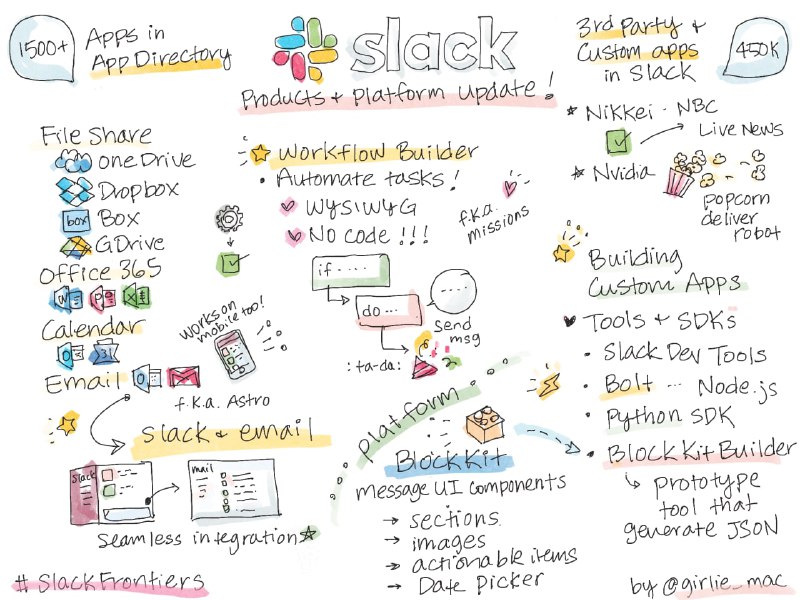 1500+
Apps in
App Directory
slack
Products + Platform Update!
3rd Party +
Custom apps
in Slack
450K
File Share
oneDrive
Dropbox
box
Box
GDrive
Office 365
W
P
X
Calendar
O
31
Email
O
f.k.a. Astro
works on
mobile too!
slack + email
slack
mail
Seamless integration
#SlackFrontiers
Workflow Builder
• Automate tasks!
WYSIWYG
No code!!!
f.k.a.
missions
if .....
do ...
.....
send
msg
:ta-da:
platform
BlockKit
message UI components
→ sections
→ images
→ actionable items
→ Date picker
* Nikkei - NBC
Live News
* Nvidia
popcorn
deliver
robot
Building
Custom Apps
Tools + SDKs
• Slack Dev Tools
• Bolt ... Node.js
• Python SDK
• BlockKit Builder
prototype
tool that
generate JSON
by @girlie_mac